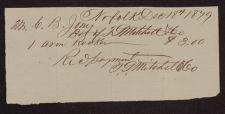 Norfolk Dec 18th 1879
Mr. C. B. Jones
Bot of J Mitchell & Co
1 arm Rocker $3.00
Rec'd payment
J Mitchell & Co